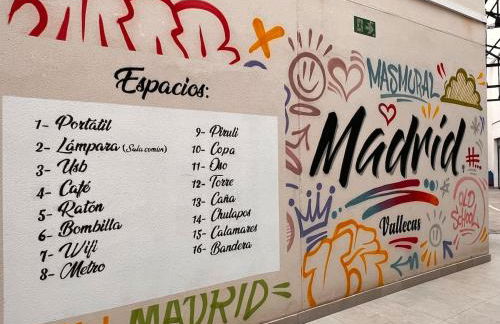 Espacios:
1- Portátil
2- Lámpara (Sala común)
3- Usb
4- Café
5- Ratón
6- Bombilla
7- Wifi
8- Metro
9- Piruli
10- Copa
11- Oso
12- Torre
13- Caña
14- Chulapos
15- Calamares
16- Bandera
MADRID
MASMURAL
Madrid
#
Vallecas
OLD
SCHOOL